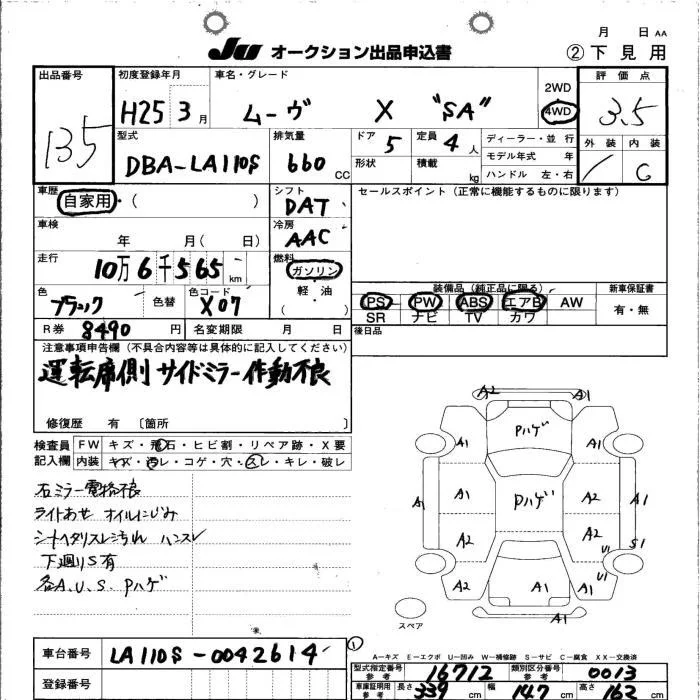 月 日 AA
JU オークション出品申込書 ②下見用
出品番号 初度登録年月 車名・グレード 評価点
135 H25 3月 ムーヴ X "SA" 2WD 4WD 3.5
型式 排気量 ドア 5 定員 4人 ディーラー・並行 外装 内装
DBA-LA110S 660CC 形状 積載 kg モデル年式 年 / C
ハンドル 左・右
車歴 自家用・( ) シフト DAT セールスポイント(正常に機能するものに限ります)
車検 年 月( 日) 冷房 AAC
走行 10万6千565km 燃料 ガソリン
軽・油
( )
装備品(純正品に限る) 新車保証書
色 ブラック 色替 色コード X07 PS PW ABS エアB AW 有・無
SR ナビ TV カワ
R券 8490円 名変期限 月 日 後日品
注意事項申告欄(不具合内容等は具体的に記入してください)
運転席側 サイドミラー作動不良
修復歴 有 〔箇所 〕
検査員 FW キズ・飛石・ヒビ割・リペア跡・X要
記入欄 内装 キズ・汚レ・コゲ・穴・スレ・キレ・破レ
右ミラー電格不良
ライトあせ オイルにじみ
シートヘタリスレ汚れ ハンスレ
下廻りS有
各A.U.S. Pハゲ
A2 A1
Pハゲ
A1 A1
A1 A1 Pハゲ A2 A1
A2 A2 U1 S1
A2 A1 A1 U1
A1
スペア
①
A−キズ E−エクボ U−凹み W−補修跡 S−サビ C−腐食 XX−交換済
車台番号 LA110S-0042614
型式指定番号 参考 16712 類別区分番号 参考 0013
登録番号
車庫証明用 参考 長さ 339cm 幅 147cm 高さ 162cm